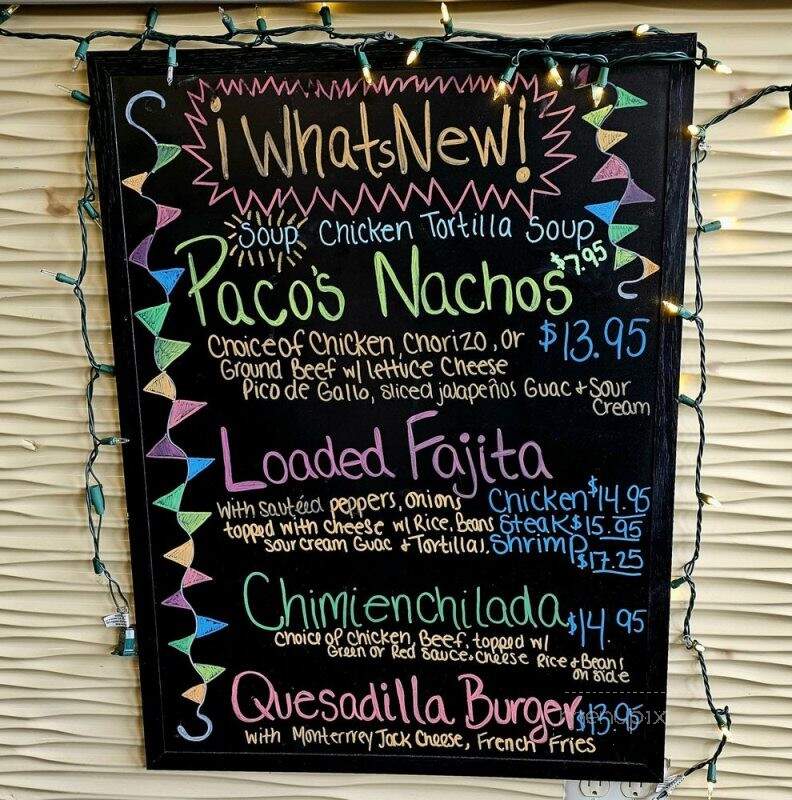 ¡WhatsNew!
Soup Chicken Tortilla Soup
$7.95
Paco's Nachos
Choice of Chicken, Chorizo, or $13.95
Ground Beef w/ lettuce Cheese
Pico de Gallo, sliced jalapeños Guac + Sour
Cream
Loaded Fajita
with sautéed peppers, onions Chicken $14.95
topped with cheese w/ Rice, Beans Steak $15.95
sour cream Guac + Tortillas. Shrimp
$17.25
Chimienchilada $14.95
choice of chicken, Beef, topped w/
Green or Red sauce + cheese Rice + Beans
on side
Quesadilla Burger $13.95
with Monterrrey Jack Cheese, French Fries